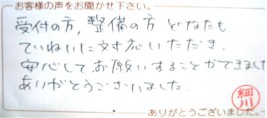 お客様の声をお聞かせ下さい。
受付の方、整備の方 どなたも
ていねいに対応いただき、
安心してお願いすることができました
ありがとうございました。
細川
ありがとうございました。